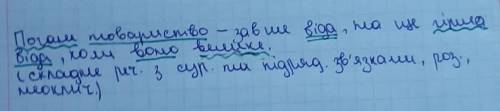 Погане товариство – завше біда, та ще гірша
біда, коли воно велике.
(складне реч. з сур. та підряд. зв'язками, роз.,
неоклич.)